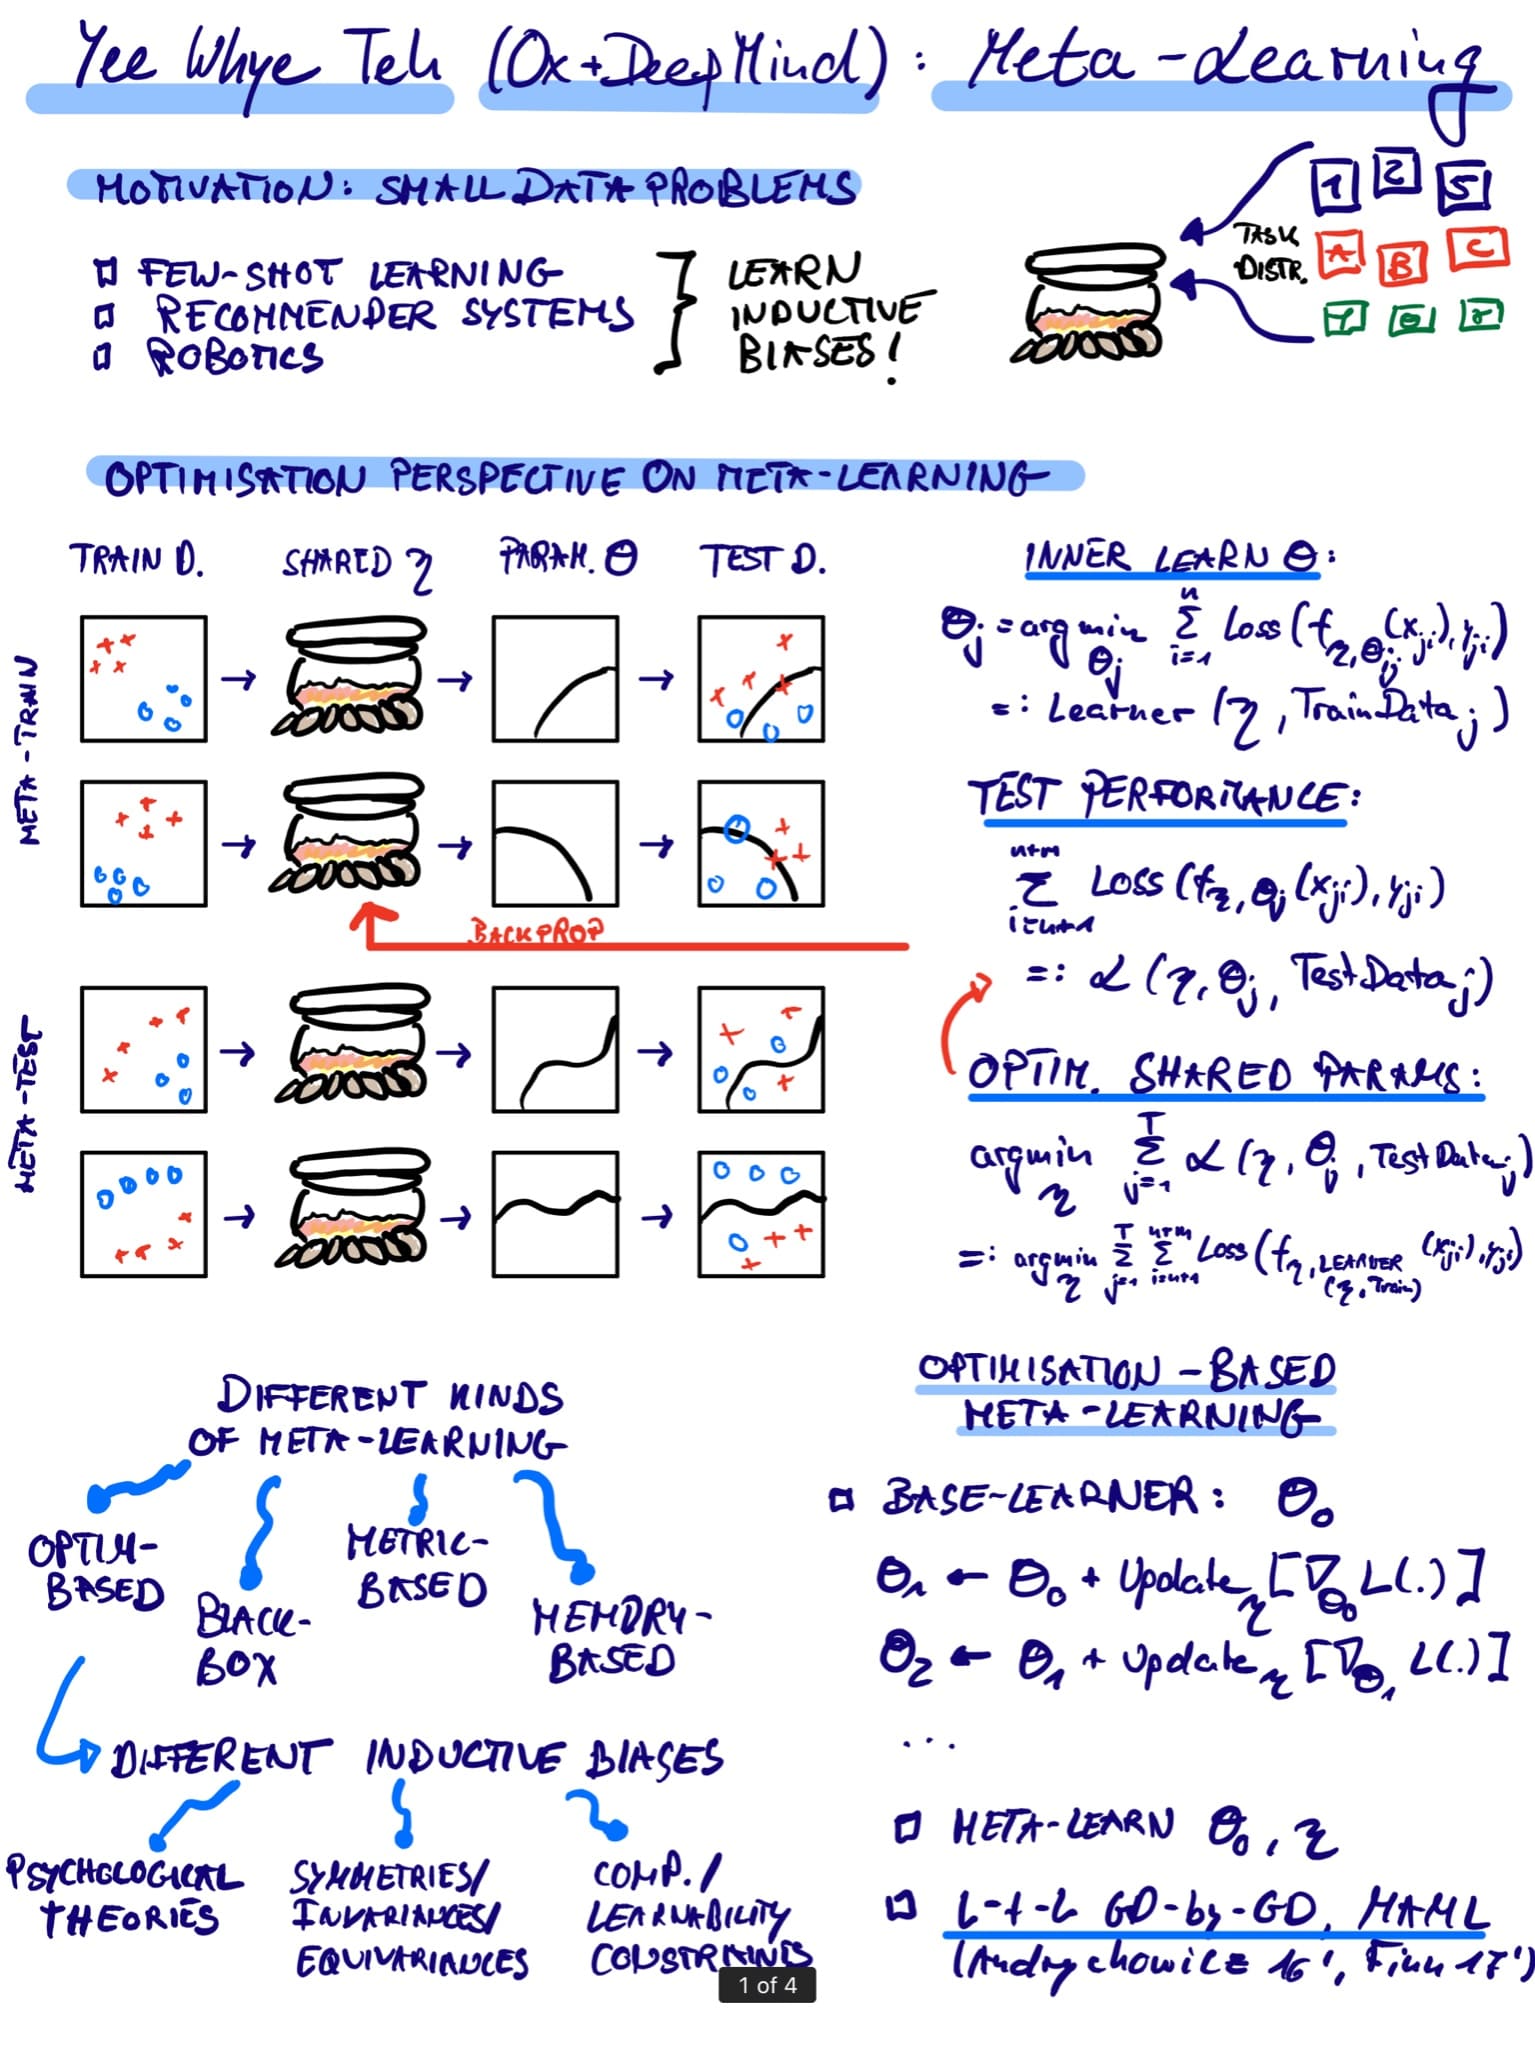 Yee Whye Teh (Ox+DeepMind): Meta-Learning
MOTIVATION: SMALL DATA PROBLEMS
FEW-SHOT LEARNING
RECOMMENDER SYSTEMS
ROBOTICS
LEARN
INDUCTIVE
BIASES!
TASK
DISTR.
1 2 5
A B C
OPTIMISATION PERSPECTIVE ON META-LEARNING
TRAIN D. SHARED η PARAM. θ TEST D.
META-TRAIN
BACKPROP
META-TEST
INNER LEARN θ:
θj = argmin θj Σ i=1 n Loss(f η,θj (xji), yji)
=: Learner (η, TrainData j)
TEST PERFORMANCE:
Σ i=n+1 n+m Loss(f η,θj (xji), yji)
=: L (η, θj, TestData j)
OPTIM. SHARED PARAMS:
argmin η Σ j=1 T L (η, θj, TestData j)
=: argmin η Σ j=1 T Σ i=n+1 n+m Loss(f η, LEARNER (η, Train) (xji), yji)
DIFFERENT KINDS
OF META-LEARNING
OPTIM-
BASED
BLACK-
BOX
METRIC-
BASED
MEMORY-
BASED
DIFFERENT INDUCTIVE BIASES
PSYCHOLOGICAL
THEORIES
SYMMETRIES/
INVARIANCES/
EQUIVARIANCES
COMP./
LEARNABILITY
CONSTRAINTS
OPTIMISATION-BASED
META-LEARNING
BASE-LEARNER: θ0
θ1 ← θ0 + Update η [∇θ0 L(.)]
θ2 ← θ1 + Update η [∇θ1 L(.)]
...
META-LEARN θ0, η
L-t-L GD-by-GD, MAML
(Andrychowicz 16', Finn 17')
1 of 4